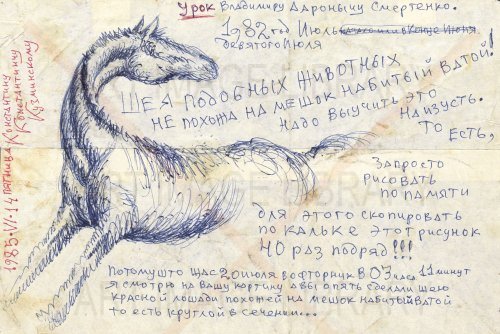 Урок Владимиру Ароновичу Смертенко.
1982 год Июль
девятого Июля
Шея подобных животных
не похожа на мешок набитый ватой!
Надо выучить это
наизусть.
То
есть,
запросто
рисовать
по памяти
для этого скопировать
по кальке этот рисунок
40 раз подряд!!!
Потомушто щас 20 июля вофторник в 07 часа 11 минут
я смотрю на вашу картину а вы опять сделали шею
красной лошади похожей на мешок набитый ватой
то есть круглой в сечении...
1985·VI·14 пятница Константину
Константиничу
Кузминскому